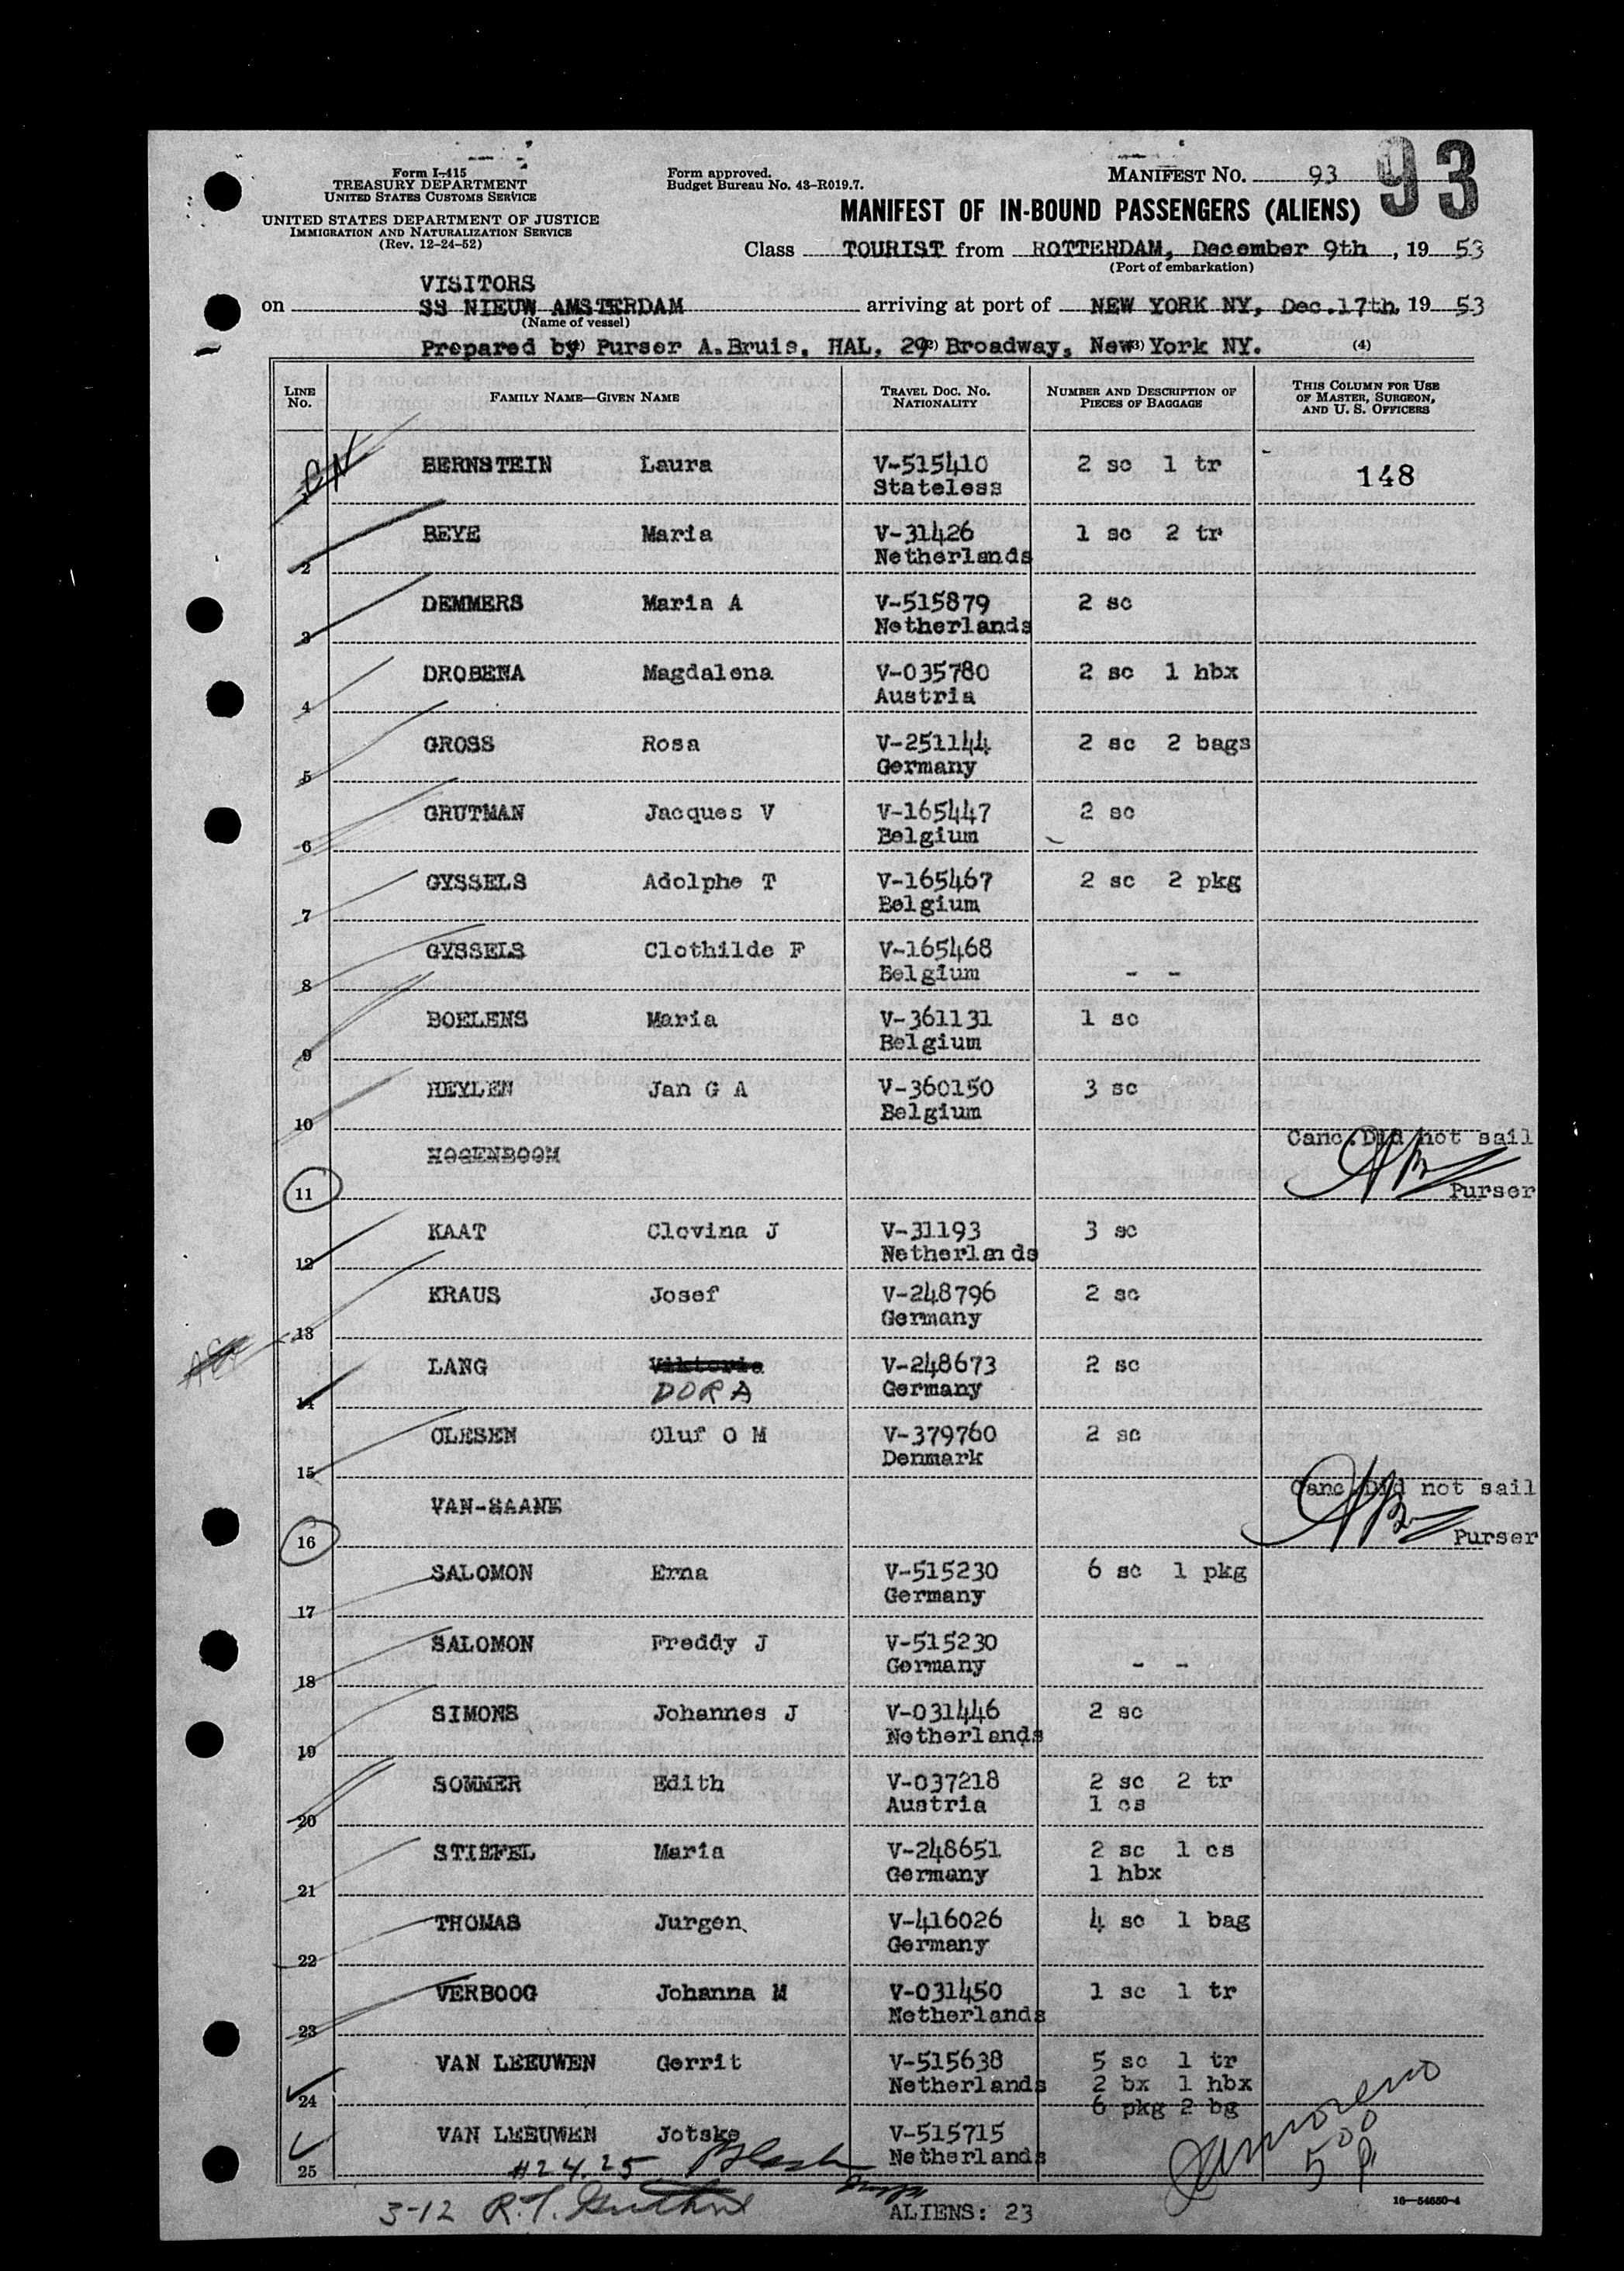 Form I-415
TREASURY DEPARTMENT
UNITED STATES CUSTOMS SERVICE
UNITED STATES DEPARTMENT OF JUSTICE
IMMIGRATION AND NATURALIZATION SERVICE
(Rev. 12-24-52)
Form approved.
Budget Bureau No. 43-R019.7.
MANIFEST NO. 93
93
MANIFEST OF IN-BOUND PASSENGERS (ALIENS)
Class TOURIST from ROTTERDAM, December 9th, 19 53
(Port of embarkation)
VISITORS
on SS NIEUW AMSTERDAM arriving at port of NEW YORK NY, Dec.17th, 19 53
(Name of vessel)
Prepared by Purser A.Bruis, HAL, 29 Broadway, New York NY.
(1) (2) (3) (4)
LINE NO. FAMILY NAME—GIVEN NAME TRAVEL DOC. NO. NATIONALITY NUMBER AND DESCRIPTION OF PIECES OF BAGGAGE THIS COLUMN FOR USE OF MASTER, SURGEON, AND U. S. OFFICERS
1 BERNSTEIN Laura V-515410 2 sc 1 tr 148
Stateless
2 BEYE Maria V-31426 1 sc 2 tr
Netherlands
3 DEMMERS Maria A V-515879 2 sc
Netherlands
4 DROBENA Magdalena V-035780 2 sc 1 hbx
Austria
5 GROSS Rosa V-251144 2 sc 2 bags
Germany
6 GRUTMAN Jacques V V-165447 2 sc
Belgium
7 GYSSELS Adolphe T V-165467 2 sc 2 pkg
Belgium
8 GYSSELS Clothilde F V-165468
Belgium - -
9 BOELENS Maria V-361131 1 sc
Belgium
10 HEYLEN Jan G A V-360150 3 sc
Belgium
11 HOGENBOOM Canc.Did not sail
Purser
12 KAAT Clovina J V-31193 3 sc
Netherlands
13 KRAUS Josef V-248796 2 sc
Germany
14 LANG Viktoria V-248673 2 sc
DORA Germany
15 OLESEN Oluf O M V-379760 2 sc
Denmark
16 VAN-SAANE Canc.Did not sail
Purser
17 SALOMON Erna V-515230 6 sc 1 pkg
Germany
18 SALOMON Freddy J V-515230
Germany - -
19 SIMONS Johannes J V-031446 2 sc
Netherlands
20 SOMMER Edith V-037218 2 sc 2 tr
Austria 1 cs
21 STIEFEL Maria V-248651 2 sc 1 cs
Germany 1 hbx
22 THOMAS Jurgen V-416026 4 sc 1 bag
Germany
23 VERBOOG Johanna M V-031450 1 sc 1 tr
Netherlands
24 VAN LEEUWEN Gerrit V-515638 5 sc 1 tr
Netherlands 2 bx 1 hbx
6 pkg 2 bg
25 VAN LEEUWEN Jetske V-515715
Netherlands
#24.25
500
3-12 R.T.
ALIENS: 23
16—54650-4